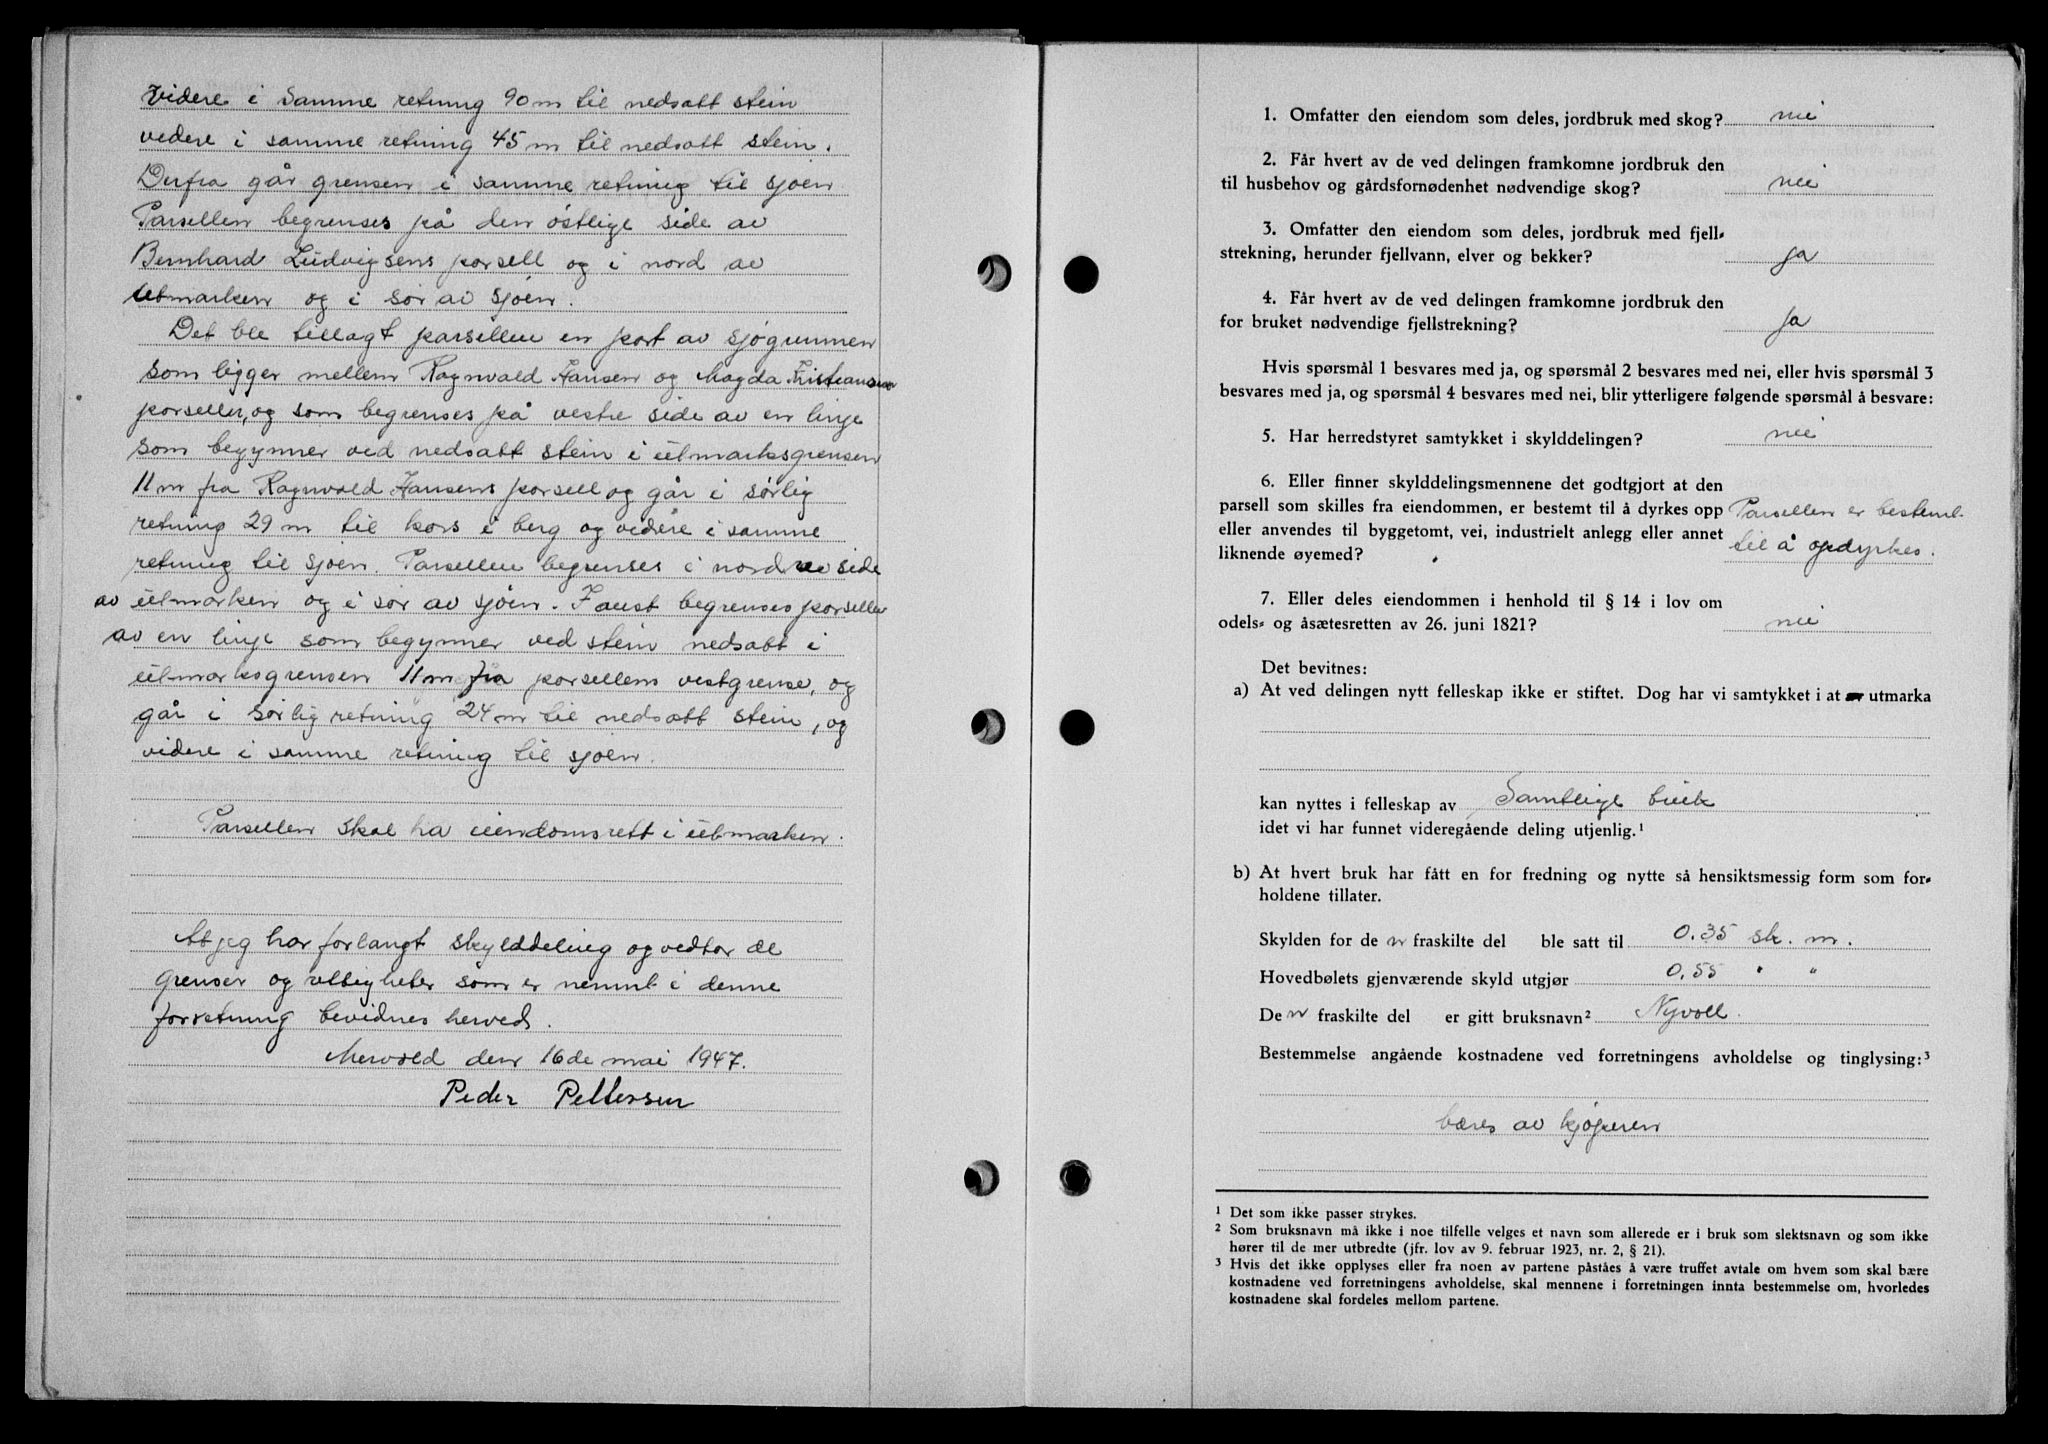 Videre i samme retning 90 m til nedsatt stein
videre i samme retning 45 m til nedsatt stein.
Derfra går grensen i samme retning til sjøen
Parsellen begrenses på den østlige side av
Bernhard Ludvigsens parsell og i nord av
utmarken og i sør av sjøen.
Det ble tillagt parsellen en part av sjøgrunnen
som ligger mellem Ragnvald Hansen og Magda Kristiansens
parseller, og som begrenses på vestre side av en linje
som begynner ved nedsatt stein i utmarksgrensen
11 m fra Ragnvald Hansens parsell og går i sørlig
retning 29 m til kors i berg og videre i samme
retning til sjøen. Parsellen begrenses i nordre side
av utmarken og i sør av sjøen. I aust begrenses parsellen
av en linje som begynner ved stein nedsatt i
utmarksgrensen 11 m fra parsellens vestgrense, og
går i sørlig retning 24 m til nedsatt stein, og
videre i samme retning til sjøen.
Parsellen skal ha eiendomsrett i utmarken.
At jeg har forlangt skylddeling og vedtar de
grenser og rettigheter som er nemnt i denne
forretning bevidnes herved.
den 16de mai 1947.
Peder Pettersen
1. Omfatter den eiendom som deles, jordbruk med skog? nei
2. Får hvert av de ved delingen framkomne jordbruk den
til husbehov og gårdsfornødenhet nødvendige skog? nei
3. Omfatter den eiendom som deles, jordbruk med fjell-
strekning, herunder fjellvann, elver og bekker? ja
4. Får hvert av de ved delingen framkomne jordbruk den
for bruket nødvendige fjellstrekning? ja
Hvis spørsmål 1 besvares med ja, og spørsmål 2 besvares med nei, eller hvis spørsmål 3
besvares med ja, og spørsmål 4 besvares med nei, blir ytterligere følgende spørsmål å besvare:
5. Har herredstyret samtykket i skylddelingen? nei
6. Eller finner skylddelingsmennene det godtgjort at den
parsell som skilles fra eiendommen, er bestemt til å dyrkes opp
eller anvendes til byggetomt, vei, industrielt anlegg eller annet
liknende øyemed?
Parsellen er bestemt
til å opdyrkes.
7. Eller deles eiendommen i henhold til § 14 i lov om
odels- og åsætesretten av 26. juni 1821? nei
Det bevitnes:
a) At ved delingen nytt felleskap ikke er stiftet. Dog har vi samtykket i at utmarka
kan nyttes i felleskap av Samtlige bruk
idet vi har funnet videregående deling utjenlig.¹
b) At hvert bruk har fått en for fredning og nytte så hensiktsmessig form som for-
holdene tillater.
Skylden for de n fraskilte del ble satt til 0.35 sk. m.
Hovedbølets gjenværende skyld utgjør 0.55 " "
De n fraskilte del er gitt bruksnavn² Nyvoll.
Bestemmelse angående kostnadene ved forretningens avholdelse og tinglysing:³
bæres av kjøperen
¹ Det som ikke passer strykes.
² Som bruksnavn må ikke i noe tilfelle velges et navn som allerede er i bruk som slektsnavn og som ikke
hører til de mer utbredte (jfr. lov av 9. februar 1923, nr. 2, § 21).
³ Hvis det ikke opplyses eller fra noen av partene påståes å være truffet avtale om hvem som skal bære
kostnadene ved forretningens avholdelse, skal mennene i forretningen innta bestemmelse om, hvorledes
kostnadene skal fordeles mellom partene.